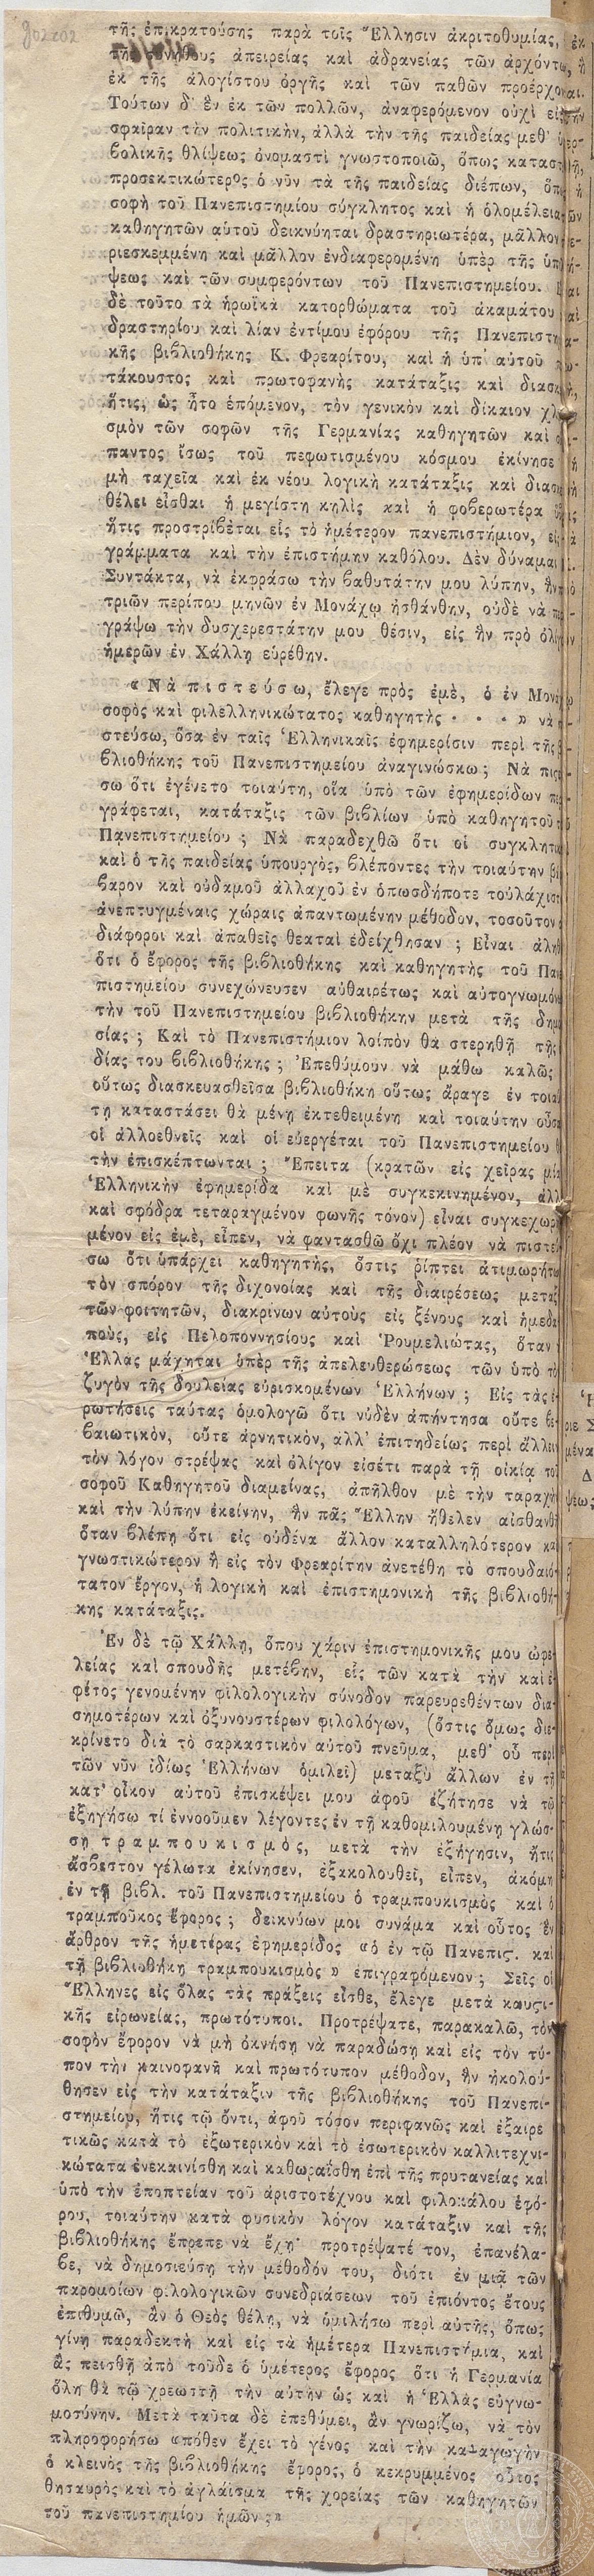 τῆς ἐπικρατούσης παρὰ τοῖς Ἕλλησιν ἀκριτοθυμίας, ἐκ
τῆς συνήθους ἀπειρείας καὶ ἀδρανείας τῶν ἀρχόντων, ἢ
ἐκ τῆς ἀλογίστου ὀργῆς καὶ τῶν παθῶν προέρχονται.
Τούτων δ' ἓν ἐκ τῶν πολλῶν, ἀναφερόμενον οὐχὶ εἰς τὴν
σφαῖραν τὴν πολιτικὴν, ἀλλὰ τὴν τῆς παιδείας μεθ' ὑπερ-
βολικῆς θλίψεως ὀνομαστὶ γνωστοποιῶ, ὅπως καταστῇ,
προσεκτικώτερος ὁ νῦν τὰ τῆς παιδείας διέπων, ὅπως ἡ
σοφὴ τοῦ Πανεπιστημίου σύγκλητος καὶ ἡ ὁλομέλεια τῶν
καθηγητῶν αὐτοῦ δεικνύηται δραστηριωτέρα, μᾶλλον πε-
ριεσκεμμένη καὶ μᾶλλον ἐνδιαφερομένη ὑπὲρ τῆς ὑπολή-
ψεως καὶ τῶν συμφερόντων τοῦ Πανεπιστημείου.
δὲ τοῦτο τὰ ἡρωϊκὰ κατορθώματα τοῦ ἀκαμάτου καὶ
δραστηρίου καὶ λίαν ἐντίμου ἐφόρου τῆς Πανεπιστημια-
κῆς βιβλιοθήκης Κ. Φρεαρίτου, καὶ ἡ ὑπ' αὐτοῦ
τάκουστος καὶ πρωτοφανὴς κατάταξις καὶ διασκευὴ,
ἥτις, ὡς ἦτο ἑπόμενον, τὸν γενικὸν καὶ δίκαιον χλευα-
σμὸν τῶν σοφῶν τῆς Γερμανίας καθηγητῶν καὶ
παντος ἴσως τοῦ πεφωτισμένου κόσμου ἐκίνησε
μὴ ταχεῖα καὶ ἐκ νέου λογικὴ κατάταξις καὶ διασκευὴ
θέλει εἶσθαι ἡ μεγίστη κηλὶς καὶ ἡ φοβερωτέρα ὕβρις
ἥτις προστρίβεται εἰς τὸ ἡμέτερον πανεπιστήμιον, εἰς τὰ
γράμματα καὶ τὴν ἐπιστήμην καθόλου. Δὲν δύναμαι
Συντάκτα, νὰ ἐκφράσω τὴν βαθυτάτην μου λύπην, ἣν πρὸ
τριῶν περίπου μηνῶν ἐν Μονάχῳ ᾐσθάνθην, οὐδὲ νὰ περι-
γράψω τὴν δυσχερεστάτην μου θέσιν, εἰς ἣν πρὸ ὀλίγων
ἡμερῶν ἐν Χάλλῃ εὑρέθην.
«Νὰ πιστεύσω, ἔλεγε πρὸς ἐμὲ, ὁ ἐν Μονάχῳ
σοφὸς καὶ φιλελληνικώτατος καθηγητὴς . . . » νὰ πι-
στεύσω, ὅσα ἐν ταῖς Ἑλληνικαῖς ἐφημερίσιν περὶ τῆς βι-
βλιοθήκης τοῦ Πανεπιστημείου ἀναγινώσκω; Νὰ πιστεύ-
σω ὅτι ἐγένετο τοιαύτη, οἵα ὑπὸ τῶν ἐφημερίδων περι-
γράφεται, κατάταξις τῶν βιβλίων ὑπὸ καθηγητοῦ τοῦ
Πανεπιστημείου; Νὰ παραδεχθῶ ὅτι οἱ συγκλητικοὶ
καὶ ὁ τῆς παιδείας ὑπουργὸς, βλέποντες τὴν τοιαύτην βάρ-
βαρον καὶ οὐδαμοῦ ἀλλαχοῦ ἐν ὁπωσδήποτε τοὐλάχιστον
ἀνεπτυγμέναις χώραις ἀπαντωμένην μέθοδον, τοσοῦτον
διάφοροι καὶ ἀπαθεῖς θεαταὶ ἐδείχθησαν; Εἶναι ἀληθὲς
ὅτι ὁ ἔφορος τῆς βιβλιοθήκης καὶ καθηγητὴς τοῦ Πανε-
πιστημείου συνεχώνευσεν αὐθαιρέτως καὶ αὐτογνωμόνως
τὴν τοῦ Πανεπιστημείου βιβλιοθήκην μετὰ τῆς δημο-
σίας; Καὶ τὸ Πανεπιστήμιον λοιπὸν θὰ στερηθῇ τῆς
δίας του βιβλιοθήκης; Ἐπεθύμουν νὰ μάθω καλῶς
οὕτως διασκευασθεῖσα βιβλιοθήκη οὕτως ἄραγε ἐν τοιαύ-
τῃ καταστάσει θὰ μένῃ ἐκτεθειμένη καὶ τοιαύτην οὖσαν
οἱ ἀλλοεθνεῖς καὶ οἱ εὐεργέται τοῦ Πανεπιστημείου θὰ
τὴν ἐπισκέπτωνται; Ἔπειτα (κρατῶν εἰς χεῖρας μίαν
Ἑλληνικὴν ἐφημερίδα καὶ μὲ συγκεκινημένον, ἀλλὰ
καὶ σφόδρα τεταραγμένον φωνῆς τόνον) εἶναι συγκεχωρη-
μένον εἰς ἐμὲ, εἶπεν, νὰ φαντασθῶ ὄχι πλέον νὰ πιστεύ-
σω ὅτι ὑπάρχει καθηγητὴς, ὅστις ῥίπτει ἀτιμωρήτως
τὸν σπόρον τῆς διχονοίας καὶ τῆς διαιρέσεως μεταξὺ
τῶν φοιτητῶν, διακρίνων αὐτοὺς εἰς ξένους καὶ ἡμεδα-
ποὺς, εἰς Πελοποννησίους καὶ Ῥουμελιώτας, ὅταν ἡ
Ἑλλὰς μάχηται ὑπὲρ τῆς ἀπελευθερώσεως τῶν ὑπὸ τὸν
ζυγὸν τῆς δουλείας εὑρισκομένων Ἑλλήνων; Εἰς τὰς ἐ-
ρωτήσεις ταύτας ὁμολογῶ ὅτι οὐδὲν ἀπήντησα οὔτε βε-
βαιωτικὸν, οὔτε ἀρνητικὸν, ἀλλ' ἐπιτηδείως περὶ ἄλλων
τὸν λόγον στρέψας καὶ ὀλίγον εἰσέτι παρὰ τῇ οἰκίᾳ τοῦ
σοφοῦ Καθηγητοῦ διαμείνας, ἀπῆλθον μὲ τὴν ταραχὴν
καὶ τὴν λύπην ἐκείνην, ἣν πᾶς Ἕλλην ἤθελεν αἰσθανθῆ
ὅταν βλέπῃ ὅτι εἰς οὐδένα ἄλλον καταλληλότερον καὶ
γνωστικώτερον ἢ εἰς τὸν Φρεαρίτην ἀνετέθη τὸ σπουδαιό-
τατον ἔργον, ἡ λογικὴ καὶ ἐπιστημονικὴ τῆς βιβλιοθή-
κης κατάταξις.
Ἐν δὲ τῷ Χάλλῃ, ὅπου χάριν ἐπιστημονικῆς μου ὠφε-
λείας καὶ σπουδῆς μετέβην, εἷς τῶν κατὰ τὴν καὶ ἐ-
φέτος γενομένην φιλολογικὴν σύνοδον παρευρεθέντων δια-
σημοτέρων καὶ ὀξυνουστέρων φιλολόγων, (ὅστις ὅμως διε-
κρίνετο διὰ τὸ σαρκαστικὸν αὐτοῦ πνεῦμα, μεθ' οὗ περὶ
τῶν νῦν ἰδίως Ἑλλήνων ὁμιλεῖ) μεταξὺ ἄλλων ἐν τῇ
κατ' οἶκον αὐτοῦ ἐπισκέψει μου ἀφοῦ ἐζήτησε νὰ τῷ
ἐξηγήσω τί ἐννοοῦμεν λέγοντες ἐν τῇ καθομιλουμένῃ γλώσ-
σῃ τραμπουκισμὸς, μετὰ τὴν ἐξήγησιν, ἥτις
ἄσβεστον γέλωτα ἐκίνησεν, ἐξακολουθεῖ, εἶπεν, ἀκόμη
ἐν τῇ βιβλ. τοῦ Πανεπιστημείου ὁ τραμπουκισμὸς καὶ ὁ
τραμποῦκος ἔφορος; δεικνύων μοι συνάμα καὶ οὗτος ἓν
ἄρθρον τῆς ἡμετέρας ἐφημερίδος «ὁ ἐν τῷ Πανεπις. καὶ
τῇ βιβλιοθήκῃ τραμπουκισμὸς» ἐπιγραφόμενον; Σεῖς οἱ
Ἕλληνες εἰς ὅλας τὰς πράξεις εἶσθε, ἔλεγε μετὰ καυστι-
κῆς εἰρωνείας, πρωτότυποι. Προτρέψατε, παρακαλῶ, τὸν
σοφὸν ἔφορον νὰ μὴ ὀκνήσῃ νὰ παραδώσῃ καὶ εἰς τὸν τύ-
πον τὴν καινοφανῆ καὶ πρωτότυπον μέθοδον, ἣν ἠκολού-
θησεν εἰς τὴν κατάταξιν τῆς βιβλιοθήκης τοῦ Πανεπι-
στημείου, ἥτις τῷ ὄντι, ἀφοῦ τόσον περιφανῶς καὶ ἐξαιρε
τικῶς κατὰ τὸ ἐξωτερικὸν καὶ τὸ ἐσωτερικὸν καλλιτεχνι-
κώτατα ἐνεκαινίσθη καὶ καθωραΐσθη ἐπὶ τῆς πρυτανείας καὶ
ὑπὸ τὴν ἐποπτείαν τοῦ ἀριστοτέχνου καὶ φιλοκάλου ἐφό-
ρου, τοιαύτην κατὰ φυσικὸν λόγον κατάταξιν καὶ τῆς
βιβλιοθήκης ἔπρεπε νὰ ἔχῃ· προτρέψατέ τον, ἐπανέλα-
βε, νὰ δημοσιεύσῃ τὴν μέθοδόν του, διότι ἐν μιᾷ τῶν
παρομοίων φιλολογικῶν συνεδριάσεων τοῦ ἐπιόντος ἔτους
ἐπιθυμῶ, ἂν ὁ Θεὸς θέλῃ, νὰ ὁμιλήσω περὶ αὐτῆς, ὅπως
γίνῃ παραδεκτὴ καὶ εἰς τὰ ἡμέτερα Πανεπιστήμια, καὶ
ἂς πεισθῇ ἀπὸ τοῦδε ὁ ὑμέτερος ἔφορος ὅτι ἡ Γερμανία
ὅλη θὰ τῷ χρεωστῇ τὴν αὐτὴν ὡς καὶ ἡ Ἑλλὰς εὐγνω-
μοσύνην. Μετὰ ταῦτα δὲ ἐπεθύμει, ἂν γνωρίζω, νὰ τὸν
πληροφορήσω «πόθεν ἔχει τὸ γένος καὶ τὴν καταγωγὴν
ὁ κλεινὸς τῆς βιβλιοθήκης ἔφορος, ὁ κεκρυμμένος οὗτος
θησαυρὸς καὶ τὸ ἀγλάϊσμα τῆς χορείας τῶν καθηγητῶν
τοῦ πανεπιστημίου ἡμῶν;»